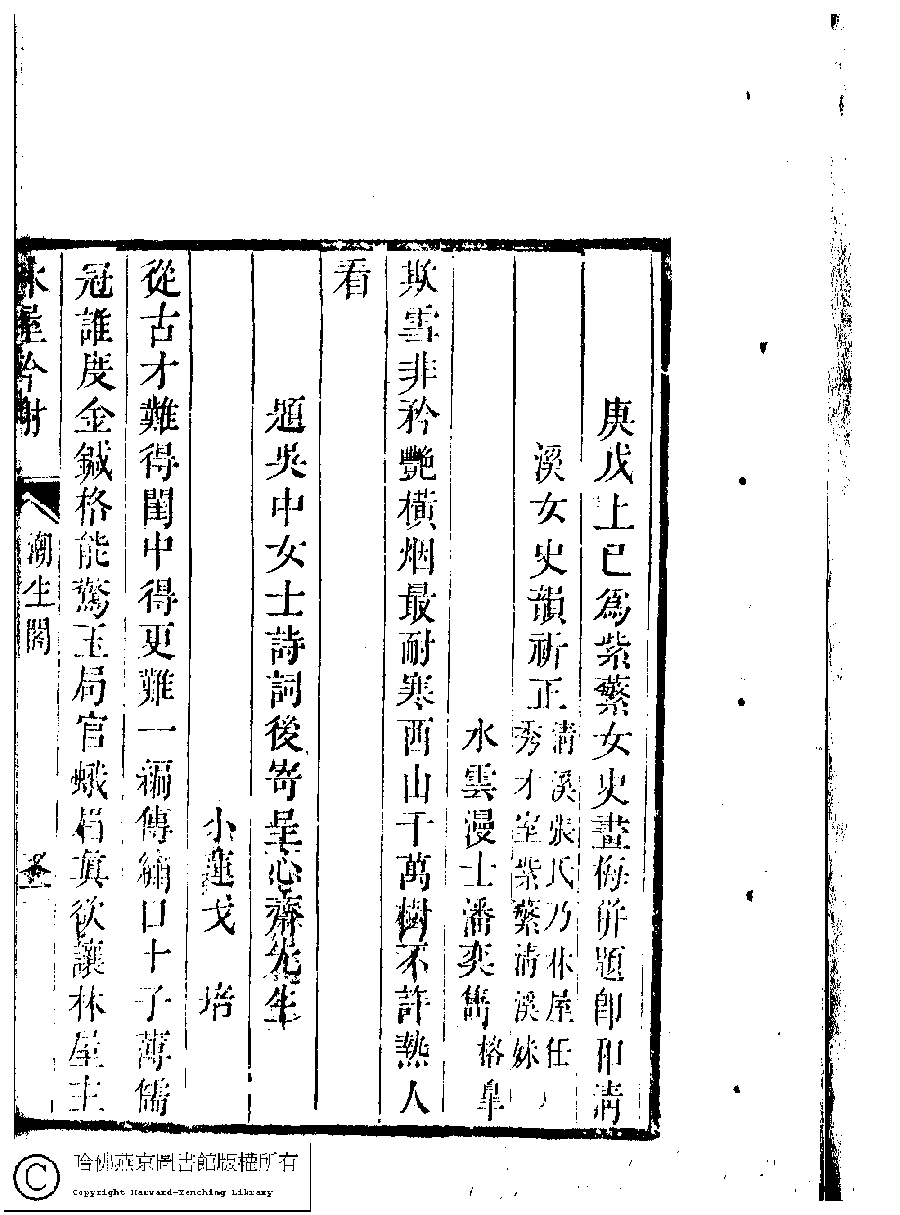 庚戌上巳為紫蘩女史畫梅併題卽和淸
溪女史韻祈正淸溪張氏乃林屋任
秀才室紫蘩淸溪妹
水雲漫士潘奕雋榕皐
欺雪非矜艷橫烟最耐寒西山千萬樹不許熱人
看
題吳中女士詩詞後寄呈心齋先生
小蓮戈 培
從古才難得閨中得更難一編傳繡口十子薄儒
冠誰度金鍼格能驚玉局官蛾眉眞欲讓林屋主
林屋吟榭
潮生閣
哈佛燕京圖書館版權所有
Copyright Harvard-Yenching Library